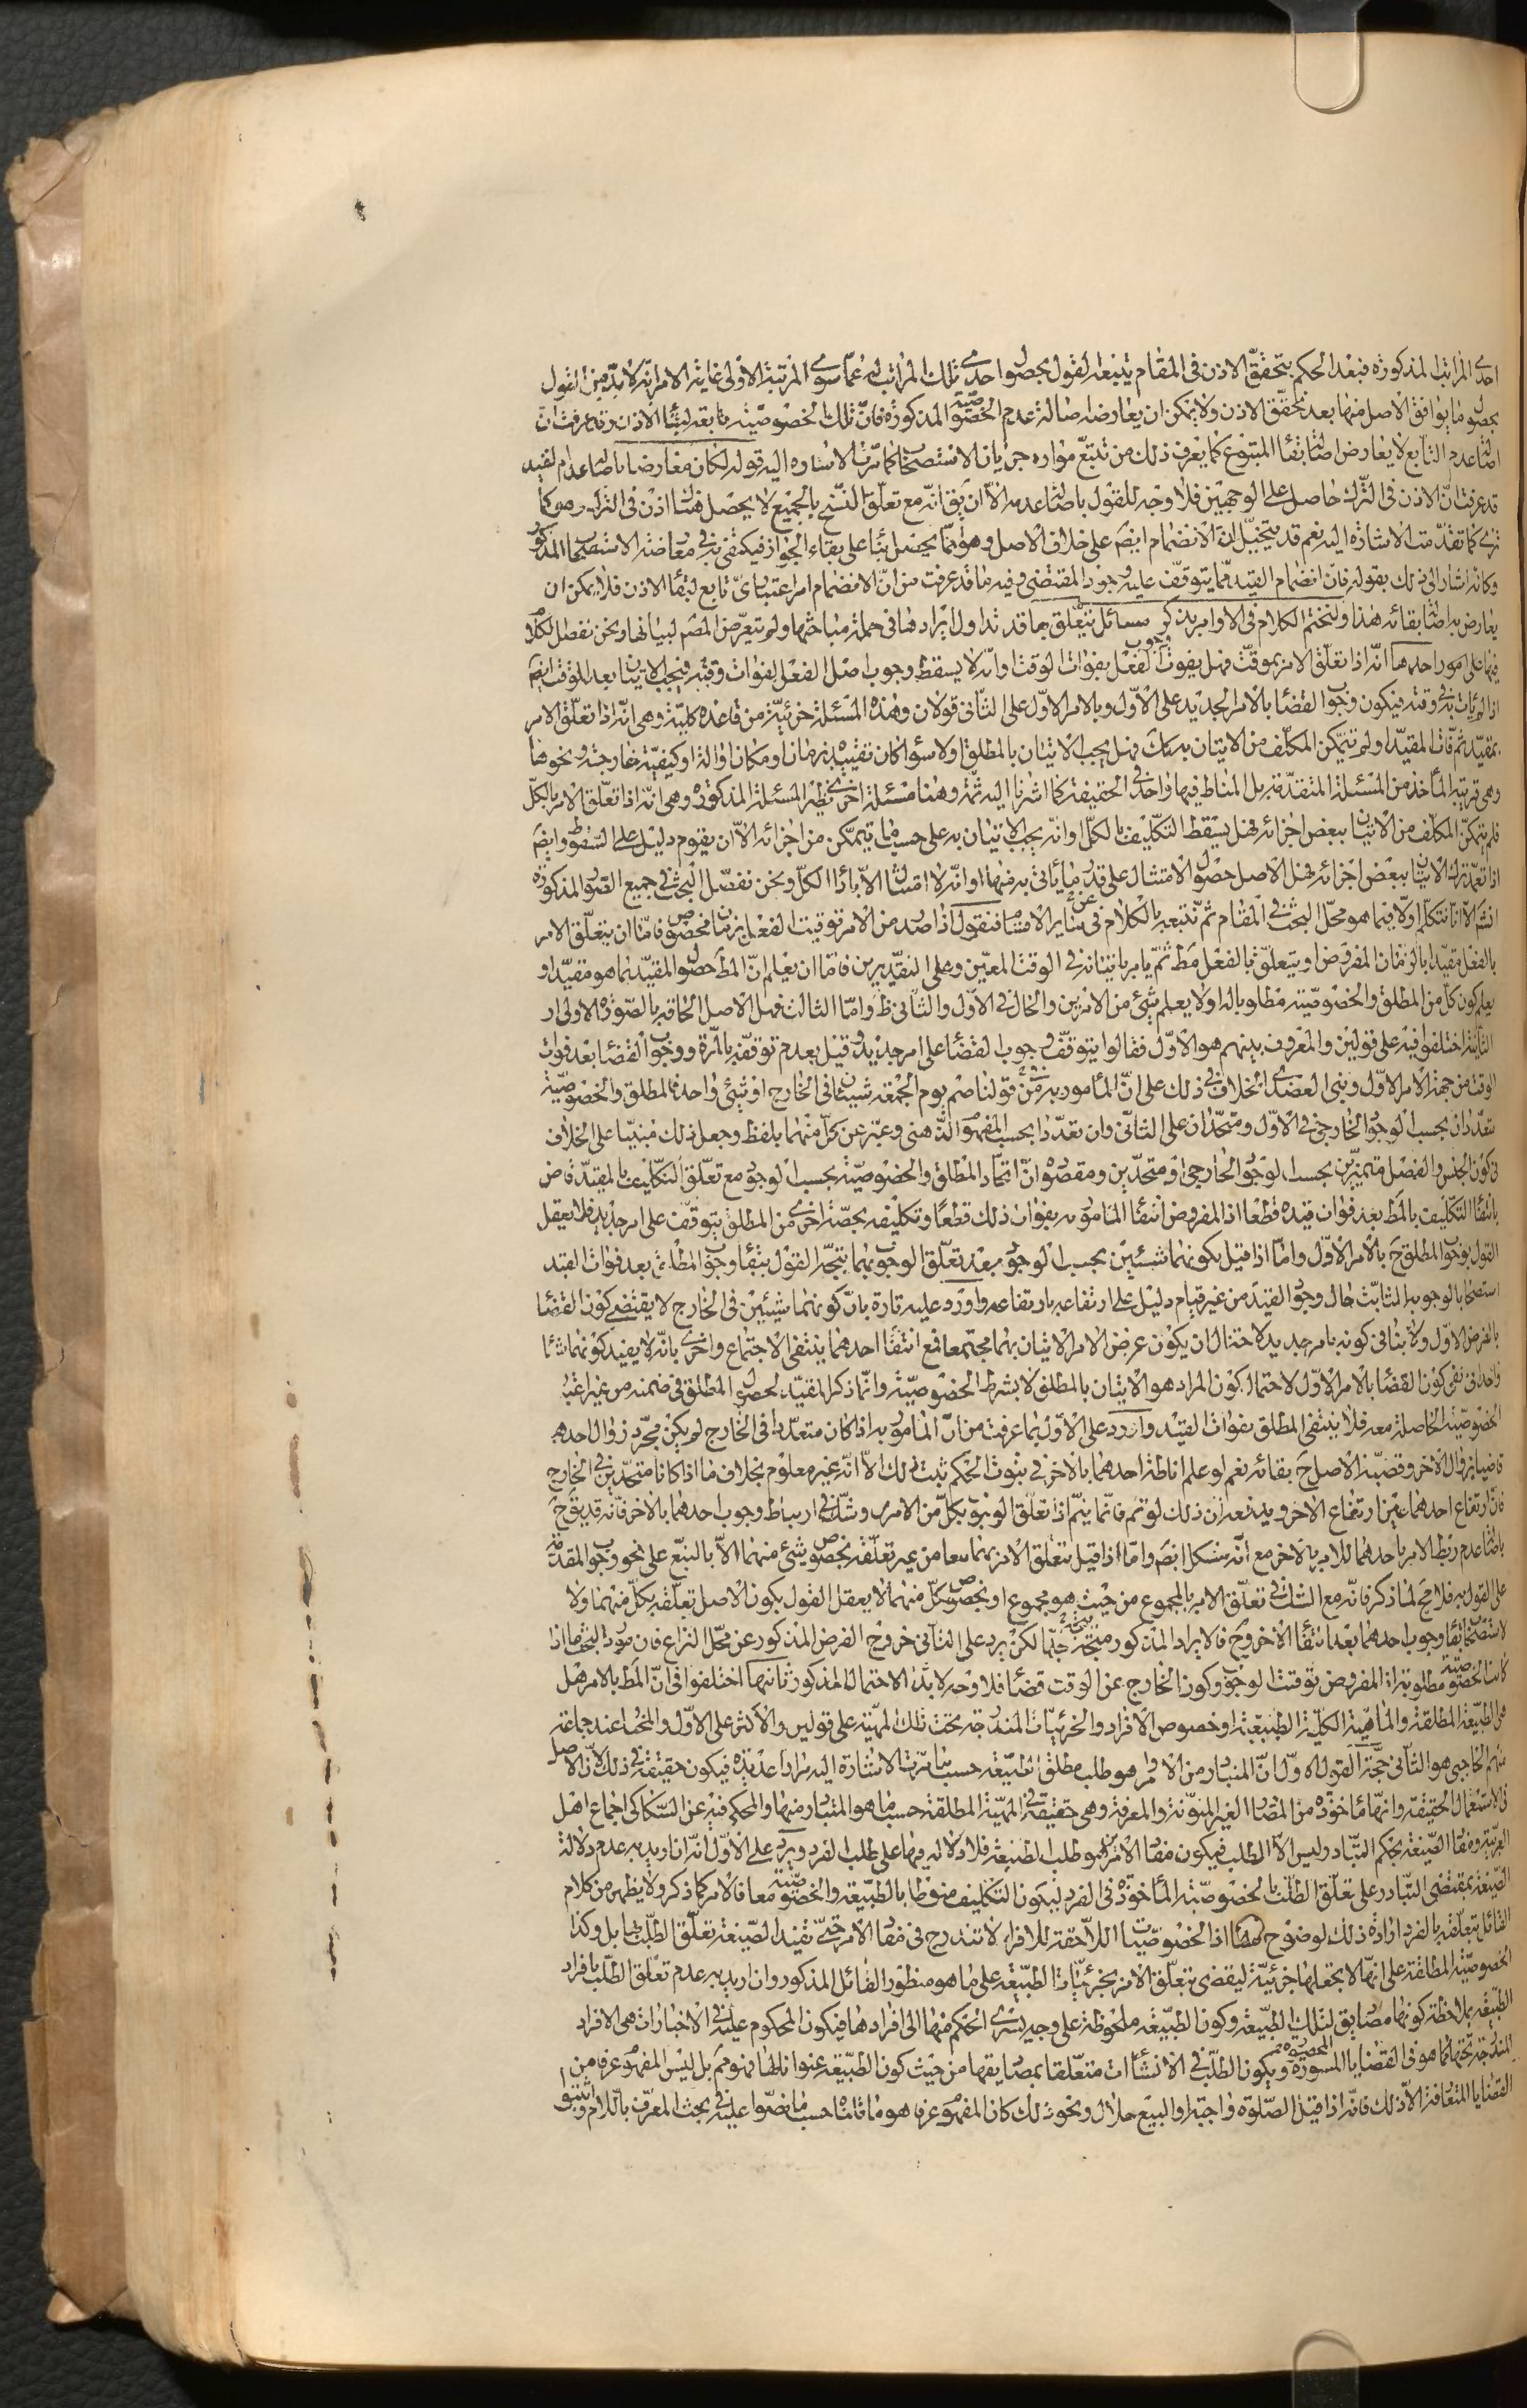 احدى المراتب المذكورة فبعد الحكم بتحقق الاذن فى المقام يتبعه القول بحصول احدى تلك المراتب له عما سوى المرتبة الاولى غاية الامر انه لا بد من القول
بحصول ما يوافق الاصل منها بعد تحقق الاذن ولا يمكن ان يعارضه اصالة عدم الخصوصية المذكورة فان تلك الخصوصية تابعة لبقاء الاذن وقد عرفت ان
اصالة عدم التابع لا يعارض اصالة بقاء المتبوع كما يعرف ذلك من تتبع موارد جريان الاستصحاب كما مرت الاشارة اليه قوله لكان معارضا باصالة عدم القيد
قد عرفت ان الاذن فى الترك حاصل على الوجهين فلا وجه للقول باصالة عدمه الا ان يق انه مع تعلق النسخ بالجميع لا يحصل هناك اذن فى الترك وهو كما
ترى كما تقدمت الاشارة اليه نعم قد يتخيل ان الانضمام ايضا على خلاف الاصل وهو انما يحصل بناء على بقاء الجواز فيكتفى به فى معارضة الاستصحاب المذكور
وكانه اشار الى ذلك بقوله فان انضمام القيد مما يتوقف عليه وجود المقتضى وفيه ما قد عرفت من ان الانضمام امر اعتبارى تابع لبقاء الاذن فلا يمكن ان
يعارض به اصالة بقائه هذا ولنختم الكلام فى الاوامر بذكر مسائل يتعلق بها قد تداول ايرادها فى جملة مباحثها ولم يتعرض المصنف لبيانها ونحن نفصل الكلام
فيها على امور احدها انه اذا تعلق الامر بموقت فهل يفوت وجوب الفعل بفوات الوقت او انه لا يسقط وجوب اصل الفعل بفوات وقته فيجب الاتيان بعد الوقت ايضا
اذا لم يات به فى وقته فيكون وجوب القضاء بالامر الجديد على الاول وبالامر الاول على الثانى قولان وهذه المسئلة جزئية من قاعدة كلية وهى انه اذا تعلق الامر
بمقيد ثم فات المقيد او لم يتمكن المكلف من الاتيان به كك فهل يجب الاتيان بالمطلق او لا سواء كان تقييده بزمان او مكان او آلة او كيفية خارجة ونحوها
وهى قريبة المأخذ من المسئلة المتقدمة بل المناط فيها واحد فى الحقيقة كما اشرنا اليه ثمة وهنا مسئلة اخرى نظير المسئلة المذكورة وهى انه اذا تعلق الامر بالكل
فلم يتمكن المكلف من الاتيان ببعض اجزائه فهل يسقط التكليف بالكل او انه يجب الاتيان به على حسب ما يتمكن من اجزائه الا ان يقوم دليل على السقوط وايضا
اذا تعمد ترك الاتيان ببعض اجزائه فهل الاصل حصول الامتثال على قدر ما ياتى به منها او انه لا امتثال الا باداء الكل ونحن نفصل البحث فى جميع الصور المذكورة
انش الا انا نتكلم اولا فيما هو محل البحث فى المقام ثم نتبعه بالكلام عن ساير الاقسام فنقول اذا صدر من الامر توقيت الفعل بزمان مخصوص فاما ان يتعلق الامر
بالفعل مقيدا بالزمان المفروض او يتعلق بالفعل مط ثم يامر باتيانه فى الوقت المعين وعلى التقديرين فاما ان يعلم ان المط حصول المقيد بما هو مقيد او
يعلم كون كل من المطلق والخصوصية مطلوبا له او لا يعلم شىء من الامرين والحال فى الاول والثانى ظ واما الثالث فهل الاصل الحاقه بالصورة الاولى او
الثانية اختلفوا فيه على قولين والمعروف بينهم هو الاول فقالوا بتوقف وجوب القضاء على امر جديد وقيل بعدم توقفه بالمرة ووجوب القضاء بعد فوات
الوقت من جهة الامر الاول وبنى العضدى الخلاف فى ذلك على ان المأمور به من قولنا صم يوم الجمعة شيئان فى الخارج او شىء واحد فالمطلق والخصوصية
متعددان بحسب الوجود الخارجى فى الاول ومتحدان على الثانى وان تعددا بحسب المفهوم الذهنى وعبر عن كل منهما بلفظ وجعل ذلك مبنيا على الخلاف
فى كون الجنس والفصل متميزين بحسب الوجود الخارجى او متحدين ومقصوده ان اتحاد المطلق والخصوصية بحسب الوجود مع تعلق التكليف بالمقيد قاض
بانتفاء التكليف بالمط بعد فوات قيده قطعا اذ المفروض انتفاء المأمور به بفوات ذلك قطعا وتكليفه بحصة اخرى من المطلق يتوقف على امر جديد فلا يعقل
القول بوجوب المطلق ح بالامر الاول واما اذا قيل بكونهما شيئين بحسب الوجود بعد تعلق الوجوب بهما يتجه القول ببقاء وجوب المطلق بعد فوات القيد
استصحابا لوجوبه الثابت حال وجود القيد من غير قيام دليل على ارتفاعه بارتفاعه واورد عليه تارة بان كونهما شيئين فى الخارج لا يقتضى كون القضاء
بالفرض الاول ولا ينافى كونه بامر جديد لاحتمال ان يكون غرض الامر الاتيان بهما مجتمعا فمع انتفاء احدهما ينتفى الاجتماع واخرى بانه لا يفيد كونهما شيئا
واحدا فى نفى كون القضاء بالامر الاول لاحتمال كون المراد هو الاتيان بالمطلق لا بشرط الخصوصية وانما ذكر المقيد لحصول المطلق فى ضمنه من غير اعتبار
الخصوصية الحاصلة معه فلا ينتفى المطلق بفوات القيد واورد على الاول بما عرفت من ان المأمور به اذا كان متعددا فى الخارج لم يكن مجرد زوال احدهما
قاضيا بزوال الاخر وقضية الاصل ح بقائه نعم لو علم اناطة احدهما بالاخر فى ثبوت الحكم ثبت ذلك الا انه غير معلوم بخلاف ما اذا كانا متحدين فى الخارج
فان ارتفاع احدهما عين ارتفاع الاخر ويدفعه ان ذلك لو تم فانما يتم اذا تعلق الوجوب بكل من الامرين وشك فى ارتباط وجوب احدهما بالاخر فانه قد يق ح
باصالة عدم ربط الامر باحدهما للامر بالاخر مع انه مشكل ايضا واما اذا قيل بتعلق الامر بهما معا من غير تعلقه بخصوص شىء منهما الا بالتبع على نحو وجوب المقدمة
على القول به فلا يصح لما ذكر فانه مع الشك فى تعلق الامر بالمجموع من حيث هو مجموع او بخصوص كل منهما لا يعقل القول بكون الاصل تعلقه بكل منهما ولا
لاستصحاب بقاء وجوب احدهما بعد انتفاء الاخر وح فالايراد المذكور متجه جدا لكن يرد على الثانى خروج الفرض المذكور عن محل النزاع فان مورد البحث ما اذا
كانت الخصوصية مطلوبة اذ المفروض توقيت الوجوب وكون الخارج عن الوقت قضاء فلا وجه لابداء الاحتمال المذكور ثانيها اختلفوا فى ان المط بالامر هل
هى الطبيعة المطلقة والماهية الكلية الطبيعية او خصوص الافراد والجزئيات المندرجة تحت تلك المهية على قولين والاكثر على الاول والمحكى عن جماعة
منهم الحاجبى هو الثانى حجة القول الاول ان المتبادر من الاوامر هو طلب مطلق الطبيعة حسب ما مرت الاشارة اليه مرارا عديدة فيكون حقيقة فى ذلك لان الاصل
فى الاستعمال الحقيقة وانها مأخوذة من المصادر الغير المنونة والمعرفة وهى حقيقة فى المهية المطلقة حسب ما هو المتبادر منها والمحكى فيه عن السكاكى اجماع اهل
العربية ومفاد الصيغة بحكم التبادر وليس الا الطلب فيكون مفاد الامر هو طلب الطبيعة فلا دلالة فيها على طلب الفرد ويرد على الاول انه ان اريد به عدم دلالة
الصيغة بمقتضى التبادر على تعلق الطلب بالخصوصية المأخوذة فى الفرد ليكون التكليف منوطا بالطبيعة والخصوصية معا فالامر كما ذكر ولا يظهر من كلام
القائل بتعلقه بالفرد ارادة ذلك لوضوح اذ الخصوصيات اللاحقة للافراد لا تندرج فى مفاد الامر حتى تفيد الصيغة تعلق الطلب بها بل وكذا
الخصوصية المطلقة على انها لا يجعلها جزئية ليقضى بتعلق الامر بجزئيات الطبيعة على ما هو منظور القائل المذكور وان اريد به عدم تعلق الطلب بافراد
الطبيعة بملاحظة كونها مصاديق لتلك الطبيعة وكون الطبيعة ملحوظة على وجه يسرى الحكم منها الى افرادها فيكون المحكوم عليه فى الاخبارات هى الافراد
المندرجة تحتها كما هو فى القضايا المحصورة ويكون الطلب فى الانشاءات متعلقا بمصاديقها من حيث كون الطبيعة عنوانا لها فممنوع بل ليس المفهوم عرفا من
القضايا المتعارفة الا ذلك فانه اذا قيل الصلوة واجبة او البيع حلال ونحو ذلك كان المفهوم عرفا هو ما قلناه حسب ما نصوا عليه فى بحث المعرف باللام